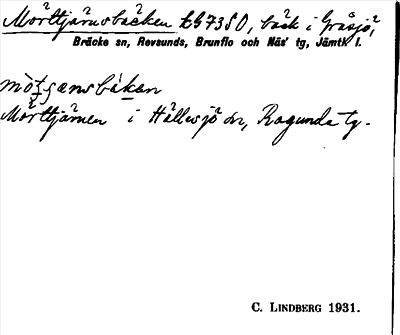 Mörttjärnsbäcken kb 7350, bäck i Gråsjö,
Bräcke sn, Revsunds, Brunflo och Näs' tg, Jämtl. l.
Mörttjärnen i Hällesjö sn, Ragunda tg.
C. LINDBERG 1931.